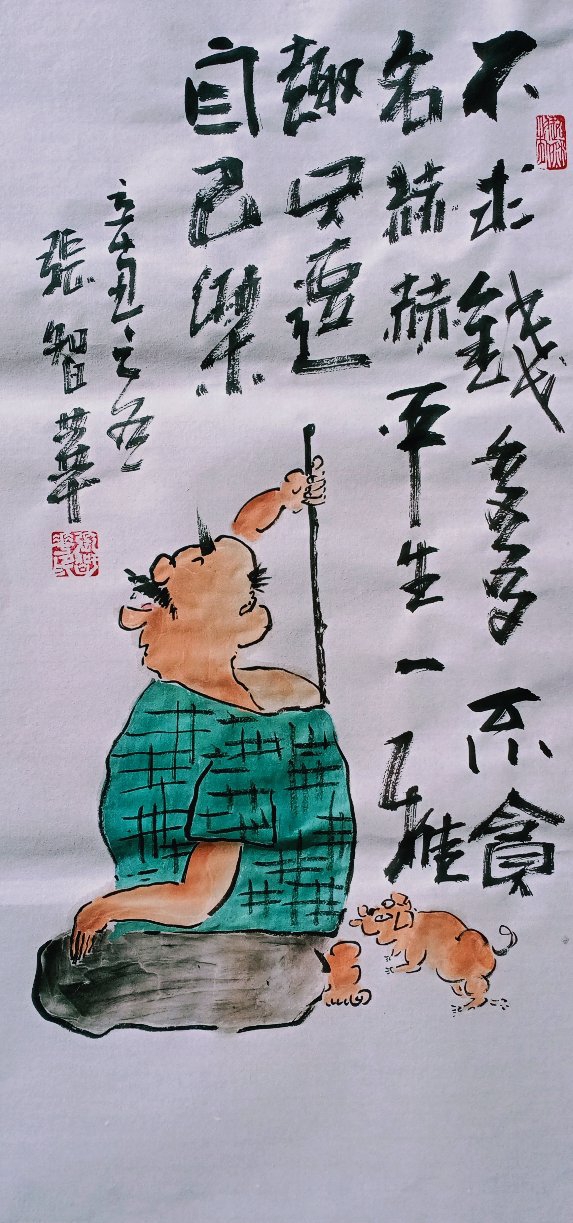 不求錢多多不貪
名赫赫平生一雅
趣只逗自己
樂
辛丑之冬
張智華